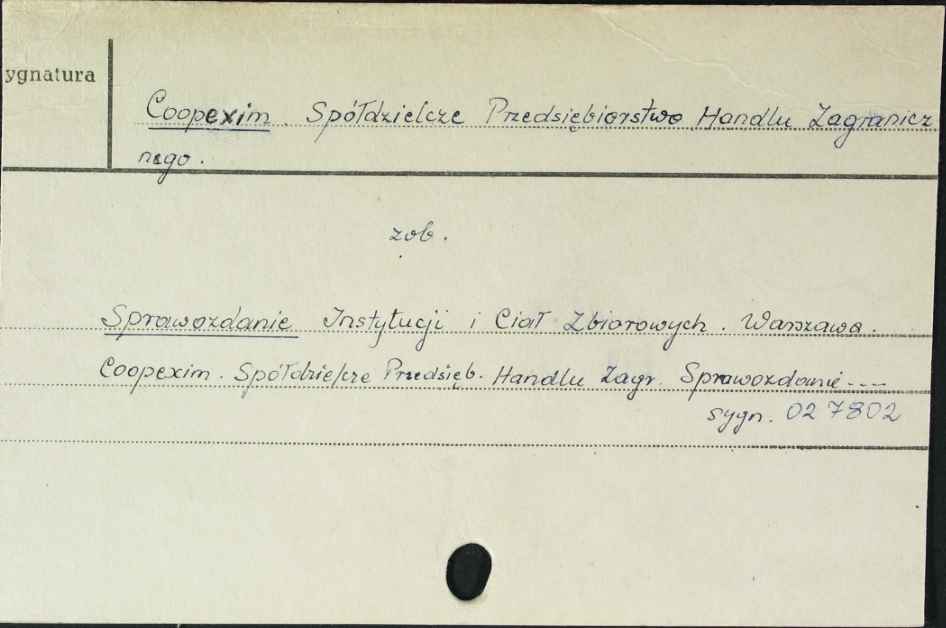 ygnatura
Coopexim. Spółdzielcze Przedsiębiorstwo Handlu Zagranicz
nego.
zob.
Sprawozdanie Instytucji i Ciał Zbiorowych. Warszawa.
Coopexim. Spółdzielcze Przedsięb. Handlu Zagr. Sprawozdanie----
sygn. 027802